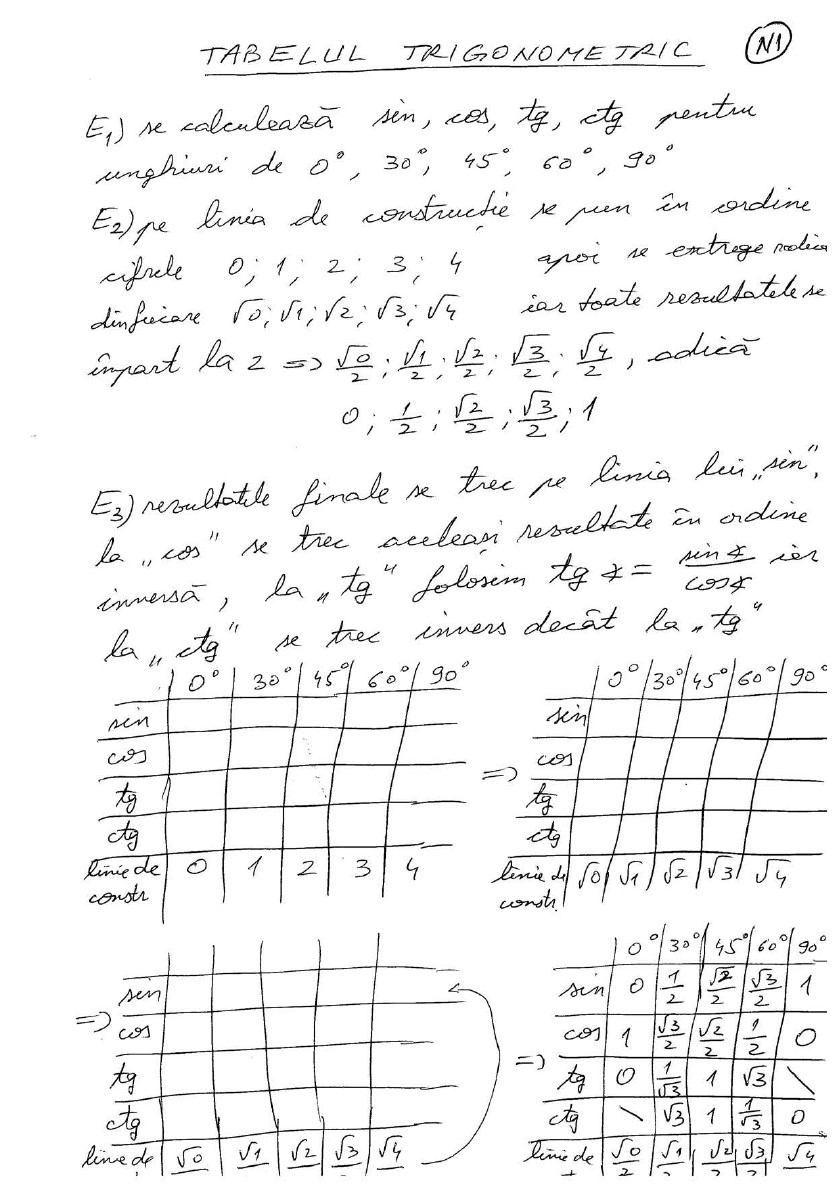 TABELUL TRIGONOMETRIC
N1
E₁) se calculează sin, cos, tg, ctg pentru
unghiuri de 0°, 30°, 45°, 60°, 90°
E₂) pe linia de construcție se pun în ordine
cifrele 0; 1; 2; 3; 4 apoi se extrage radica
din fiecare √0; √1; √2; √3; √4 iar toate rezultatele se
împart la 2 => √0/2; √1/2; √2/2; √3/2; √4/2, adică
0; 1/2; √2/2; √3/2; 1
E₃) rezultatele finale se trec pe linia lui „sin",
la „cos" se trec aceleași rezultate în ordine
inversă, la „tg" folosim tg ∢ = sin∢/cos∢ iar
la „ctg" se trec invers decât la „tg"
0° 30° 45° 60° 90°
sin
cos
tg
ctg
linie de constr 0 1 2 3 4
=> 0° 30° 45° 60° 90°
sin
cos
tg
ctg
linie de constr. √0 √1 √2 √3 √4
=> sin
cos
tg
ctg
linie de √0 √1 √2 √3 √4
=> 0° 30° 45° 60° 90°
sin 0 1/2 √2/2 √3/2 1
cos 1 √3/2 √2/2 1/2 0
tg 0 1/√3 1 √3 \
ctg \ √3 1 1/√3 0
linie de √0/2 √1/2 √2/2 √3/2 √4